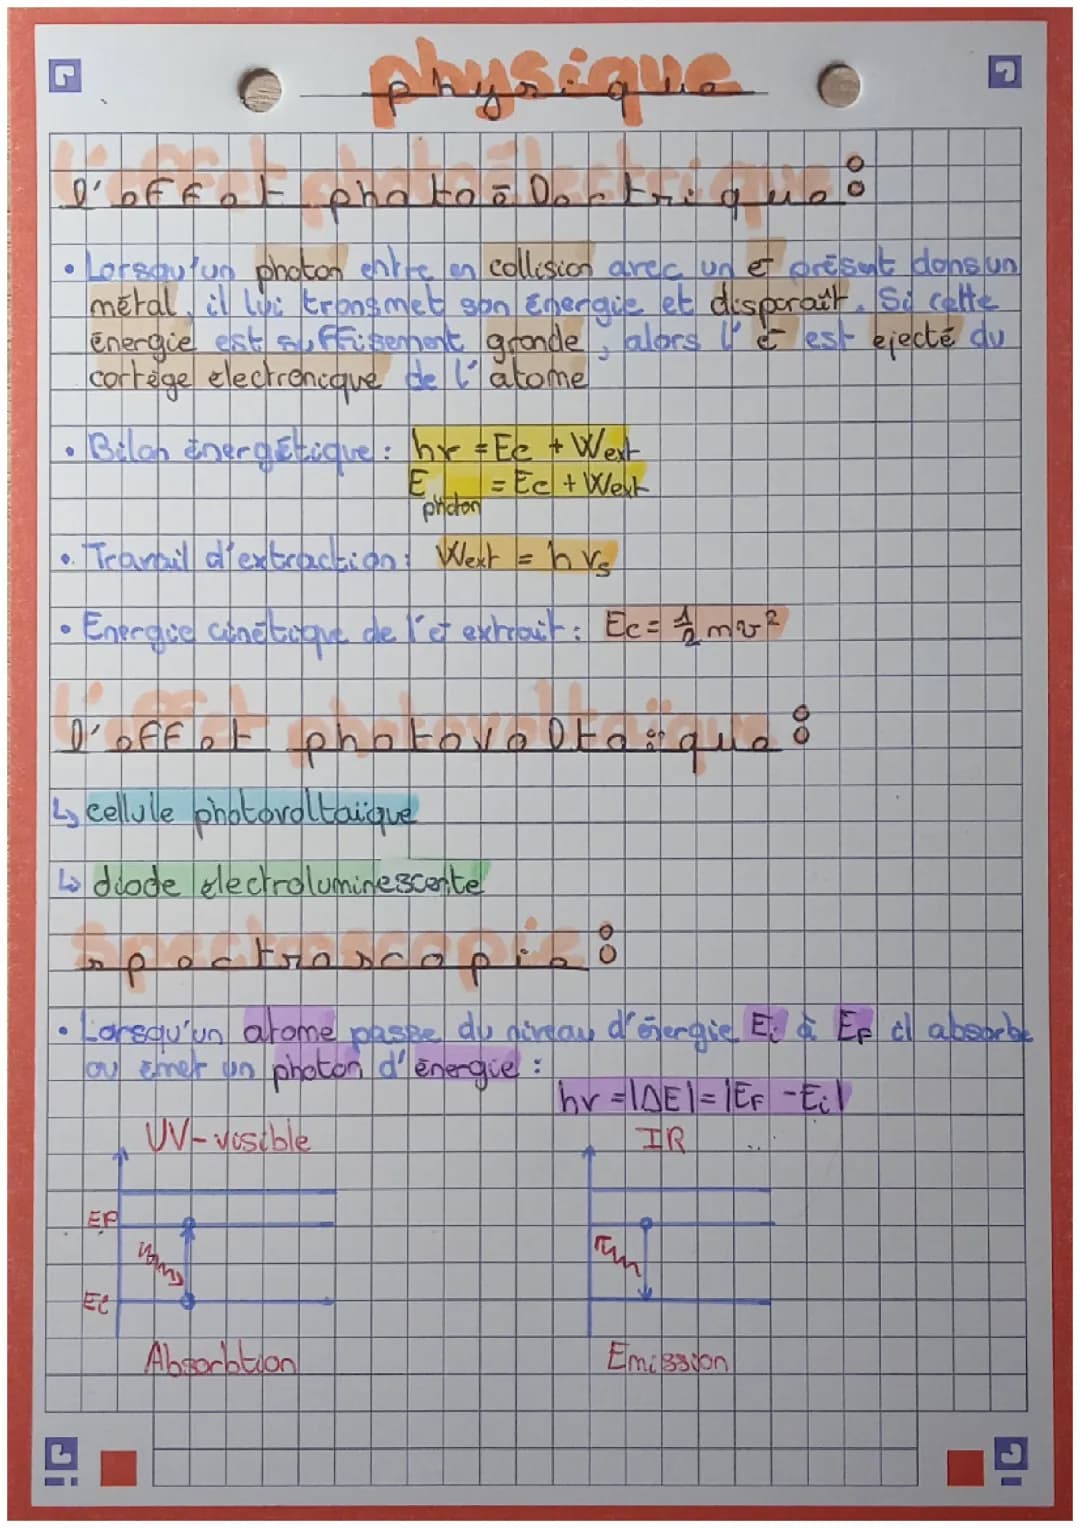 physique
L'effet photoélectrique :
• Lorsqu'un photon entre en collision avec un e⁻ présent dans un
métal, il lui transmet son énergie et disparaît. Si cette
énergie est suffisement grande, alors l'e⁻ est ejecté du
cortège electronique de l'atome
• Bilan énergétique : hν = Ec + Wext
E photon = Ec + Wext
• Travail d'extraction : Wext = h νs
• Energie cinétique de l'e⁻ extrait : Ec = 1/2 mv²
L'effet photovoltaïque :
↳ cellule photovoltaïque
↳ diode électroluminescente
Spectroscopie :
• Lorsqu'un atome passe du niveau d'énergie Ei à EF il absorbe
ou émet un photon d'énergie :
hν = |ΔE| = |EF - Ei|
UV-visible IR
EF
Ei
Absorbtion Emission